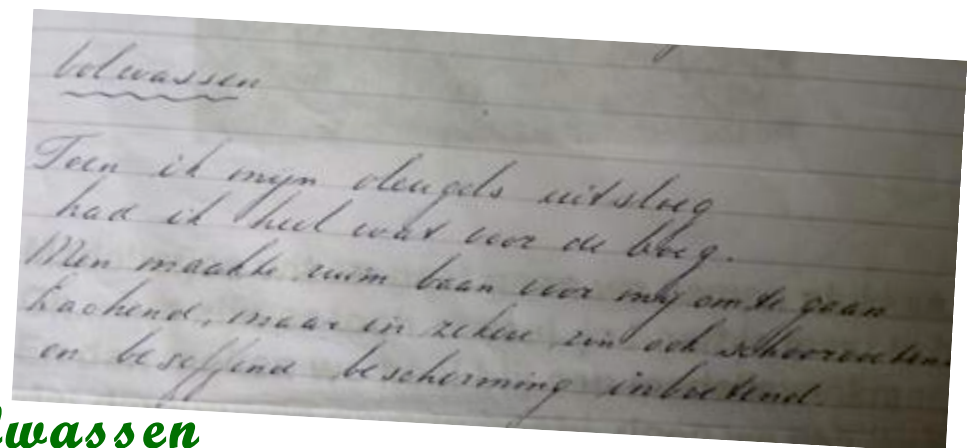 volwassen
Toen ik mijn vleugels uitsloeg
had ik heel wat voor de boeg.
Men maakte ruim baan voor mij om te gaan
Lachend, maar in zekere zin ook schoorvoetend
en beseffend bescherming inboetend.
lwassen